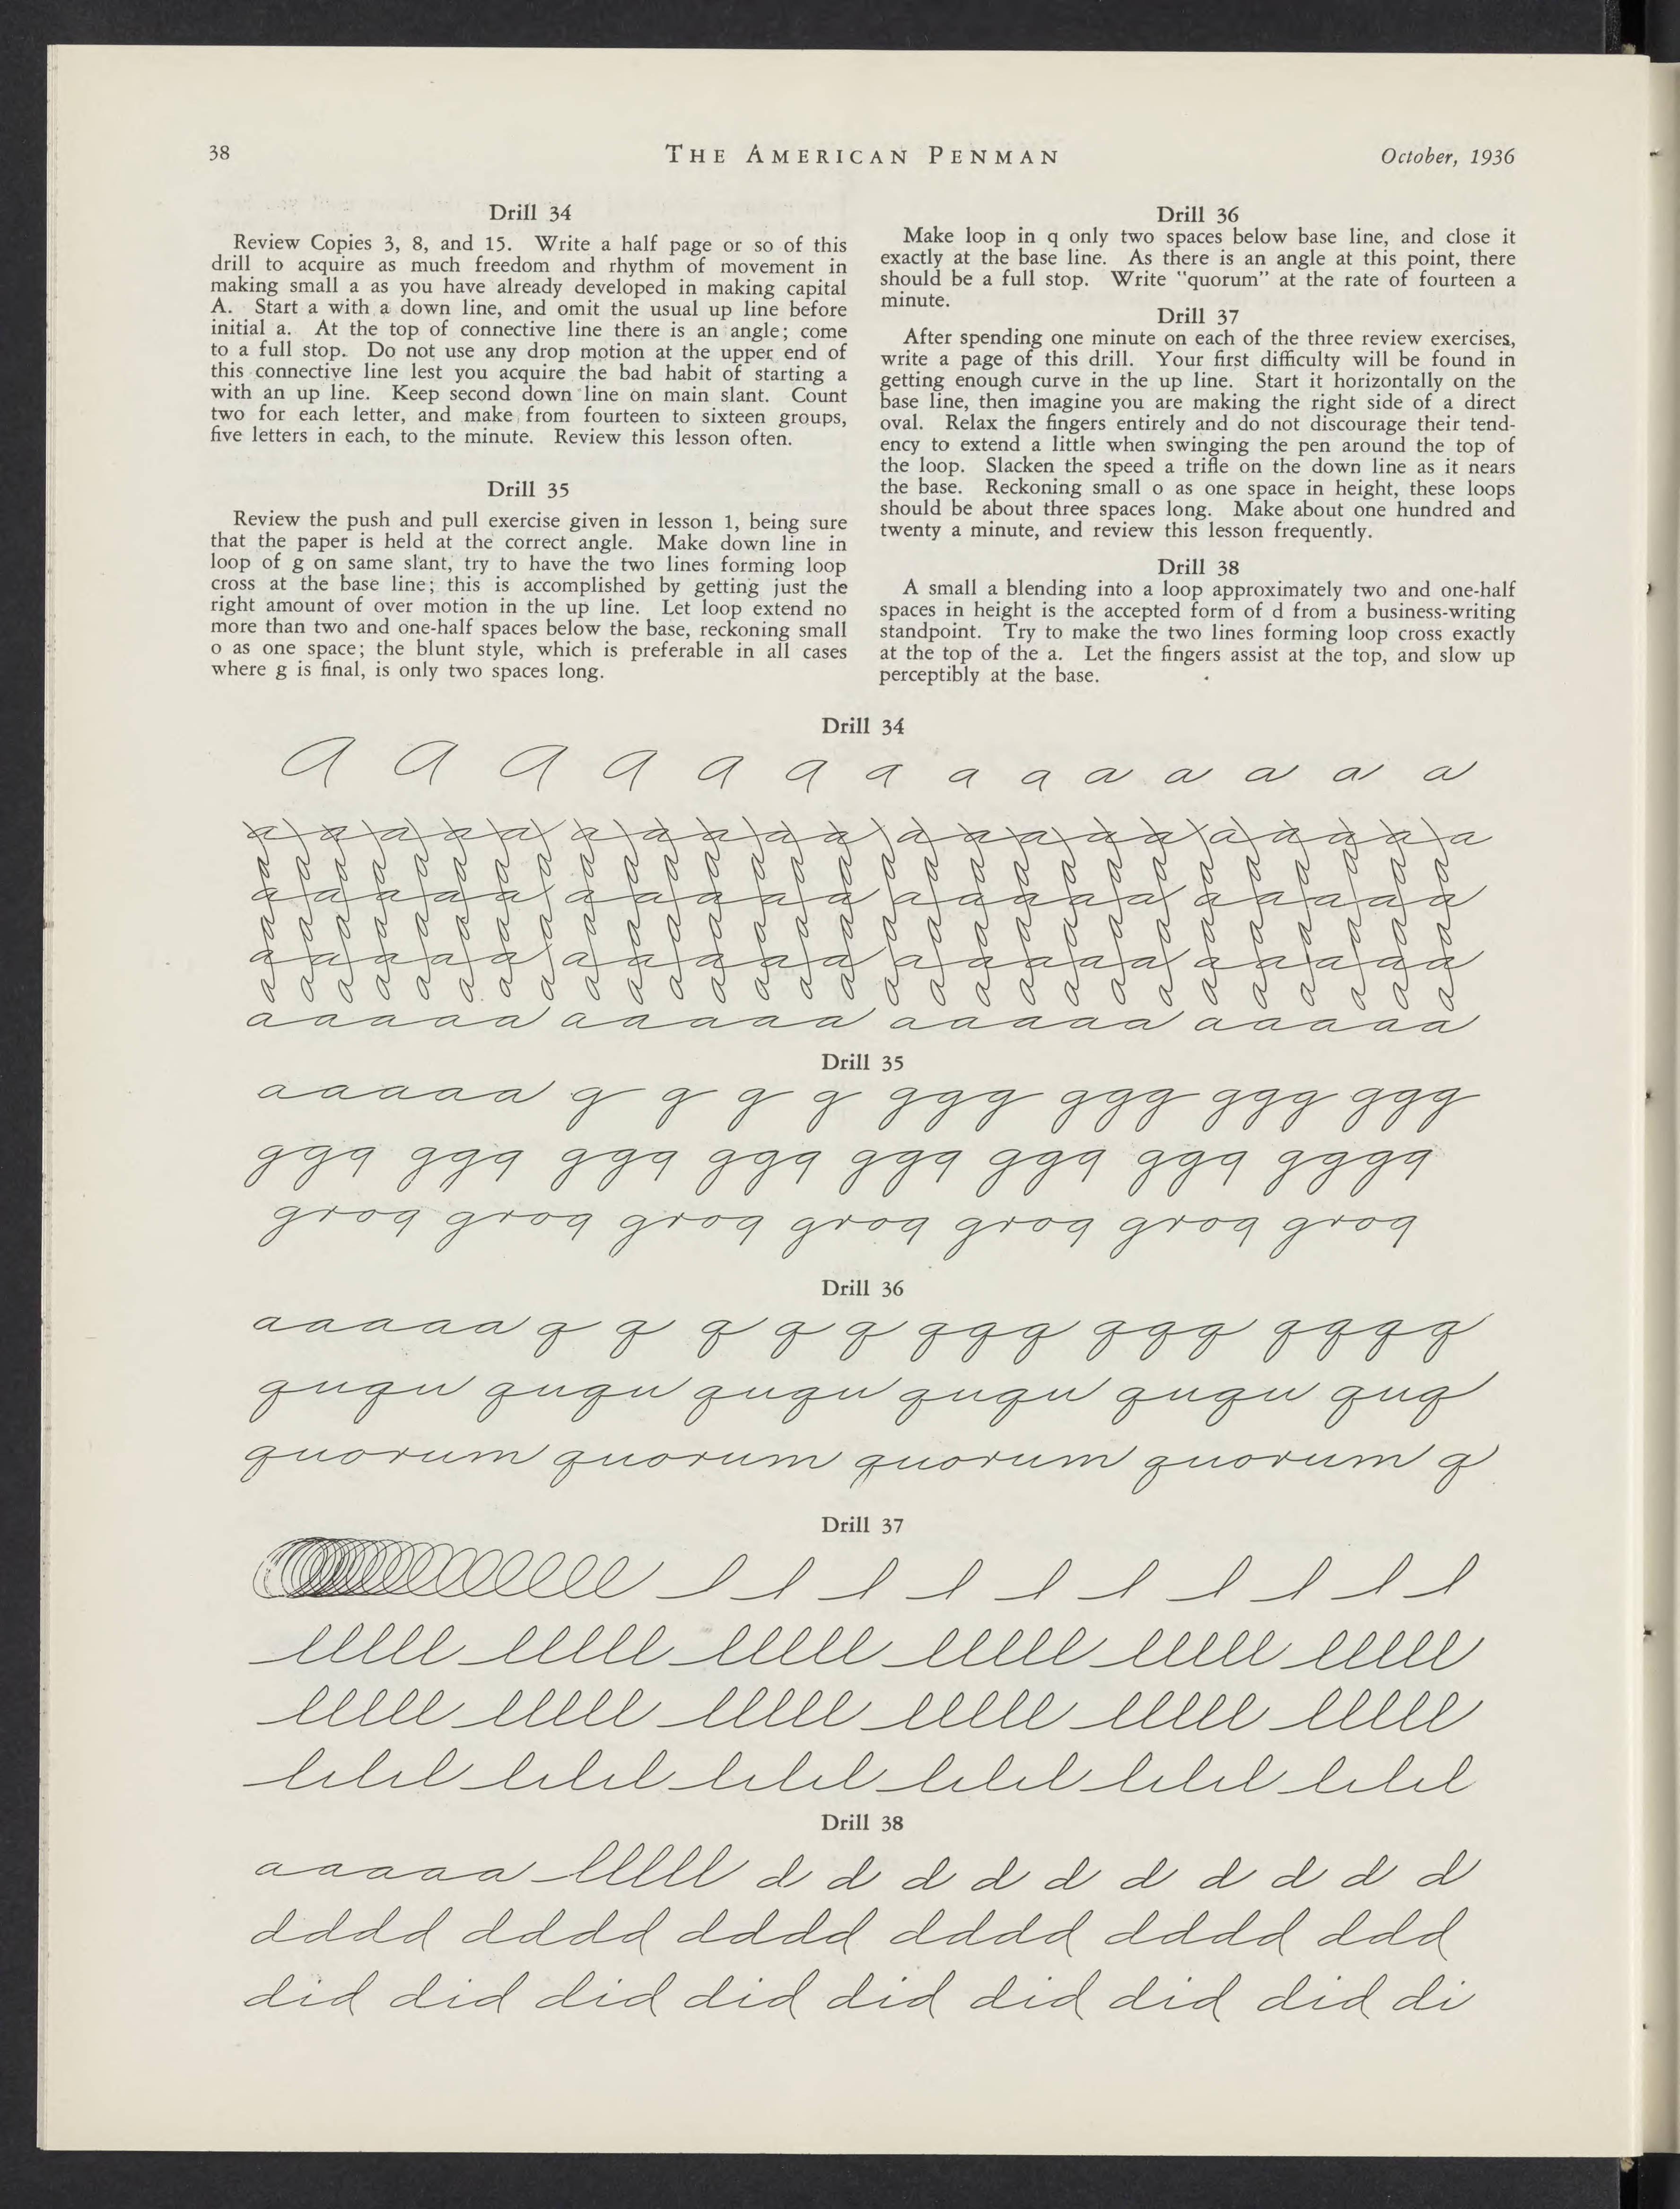 38
THE AMERICAN PENMAN
October, 1936
Drill 34
Review Copies 3, 8, and 15. Write a half page or so of this
drill to acquire as much freedom and rhythm of movement in
making small a as you have already developed in making capital
A. Start a with a down line, and omit the usual up line before
initial a. At the top of connective line there is an angle; come
to a full stop. Do not use any drop motion at the upper end of
this connective line lest you acquire the bad habit of starting a
with an up line. Keep second down line on main slant. Count
two for each letter, and make from fourteen to sixteen groups,
five letters in each, to the minute. Review this lesson often.
Drill 35
Review the push and pull exercise given in lesson 1, being sure
that the paper is held at the correct angle. Make down line in
loop of g on same slant, try to have the two lines forming loop
cross at the base line; this is accomplished by getting just the
right amount of over motion in the up line. Let loop extend no
more than two and one-half spaces below the base, reckoning small
o as one space; the blunt style, which is preferable in all cases
where g is final, is only two spaces long.
Drill 36
Make loop in q only two spaces below base line, and close it
exactly at the base line. As there is an angle at this point, there
should be a full stop. Write "quorum" at the rate of fourteen a
minute.
Drill 37
After spending one minute on each of the three review exercises,
write a page of this drill. Your first difficulty will be found in
getting enough curve in the up line. Start it horizontally on the
base line, then imagine you are making the right side of a direct
oval. Relax the fingers entirely and do not discourage their tend-
ency to extend a little when swinging the pen around the top of
the loop. Slacken the speed a trifle on the down line as it nears
the base. Reckoning small o as one space in height, these loops
should be about three spaces long. Make about one hundred and
twenty a minute, and review this lesson frequently.
Drill 38
A small a blending into a loop approximately two and one-half
spaces in height is the accepted form of d from a business-writing
standpoint. Try to make the two lines forming loop cross exactly
at the top of the a. Let the fingers assist at the top, and slow up
perceptibly at the base.
Drill 34
a a a a a a a a a a a a a a
a a a a a a a a a a a a a a a a a a a a
a a a a a a a a a a a a a a a a a a a a
a a a a a a a a a a a a a a a a a a a a
a a a a a a a a a a a a a a a a a a a a
Drill 35
aaaaa g g g g ggg ggg ggg ggg
ggg ggg ggg ggg ggg ggg ggg gggg
grog grog grog grog grog grog grog
Drill 36
aaaaa q q q q q qqq qqq qqqq
ququ ququ ququ ququ ququ quq
quorum quorum quorum quorum q
Drill 37
l l l l l l l l l l
lllll lllll lllll lllll lllll lllll
lllll lllll lllll lllll lllll lllll
lilil lilil lilil lilil lilil lilil
Drill 38
aaaaa lllll d d d d d d d d d d
dddd dddd dddd dddd dddd ddd
did did did did did did did did di